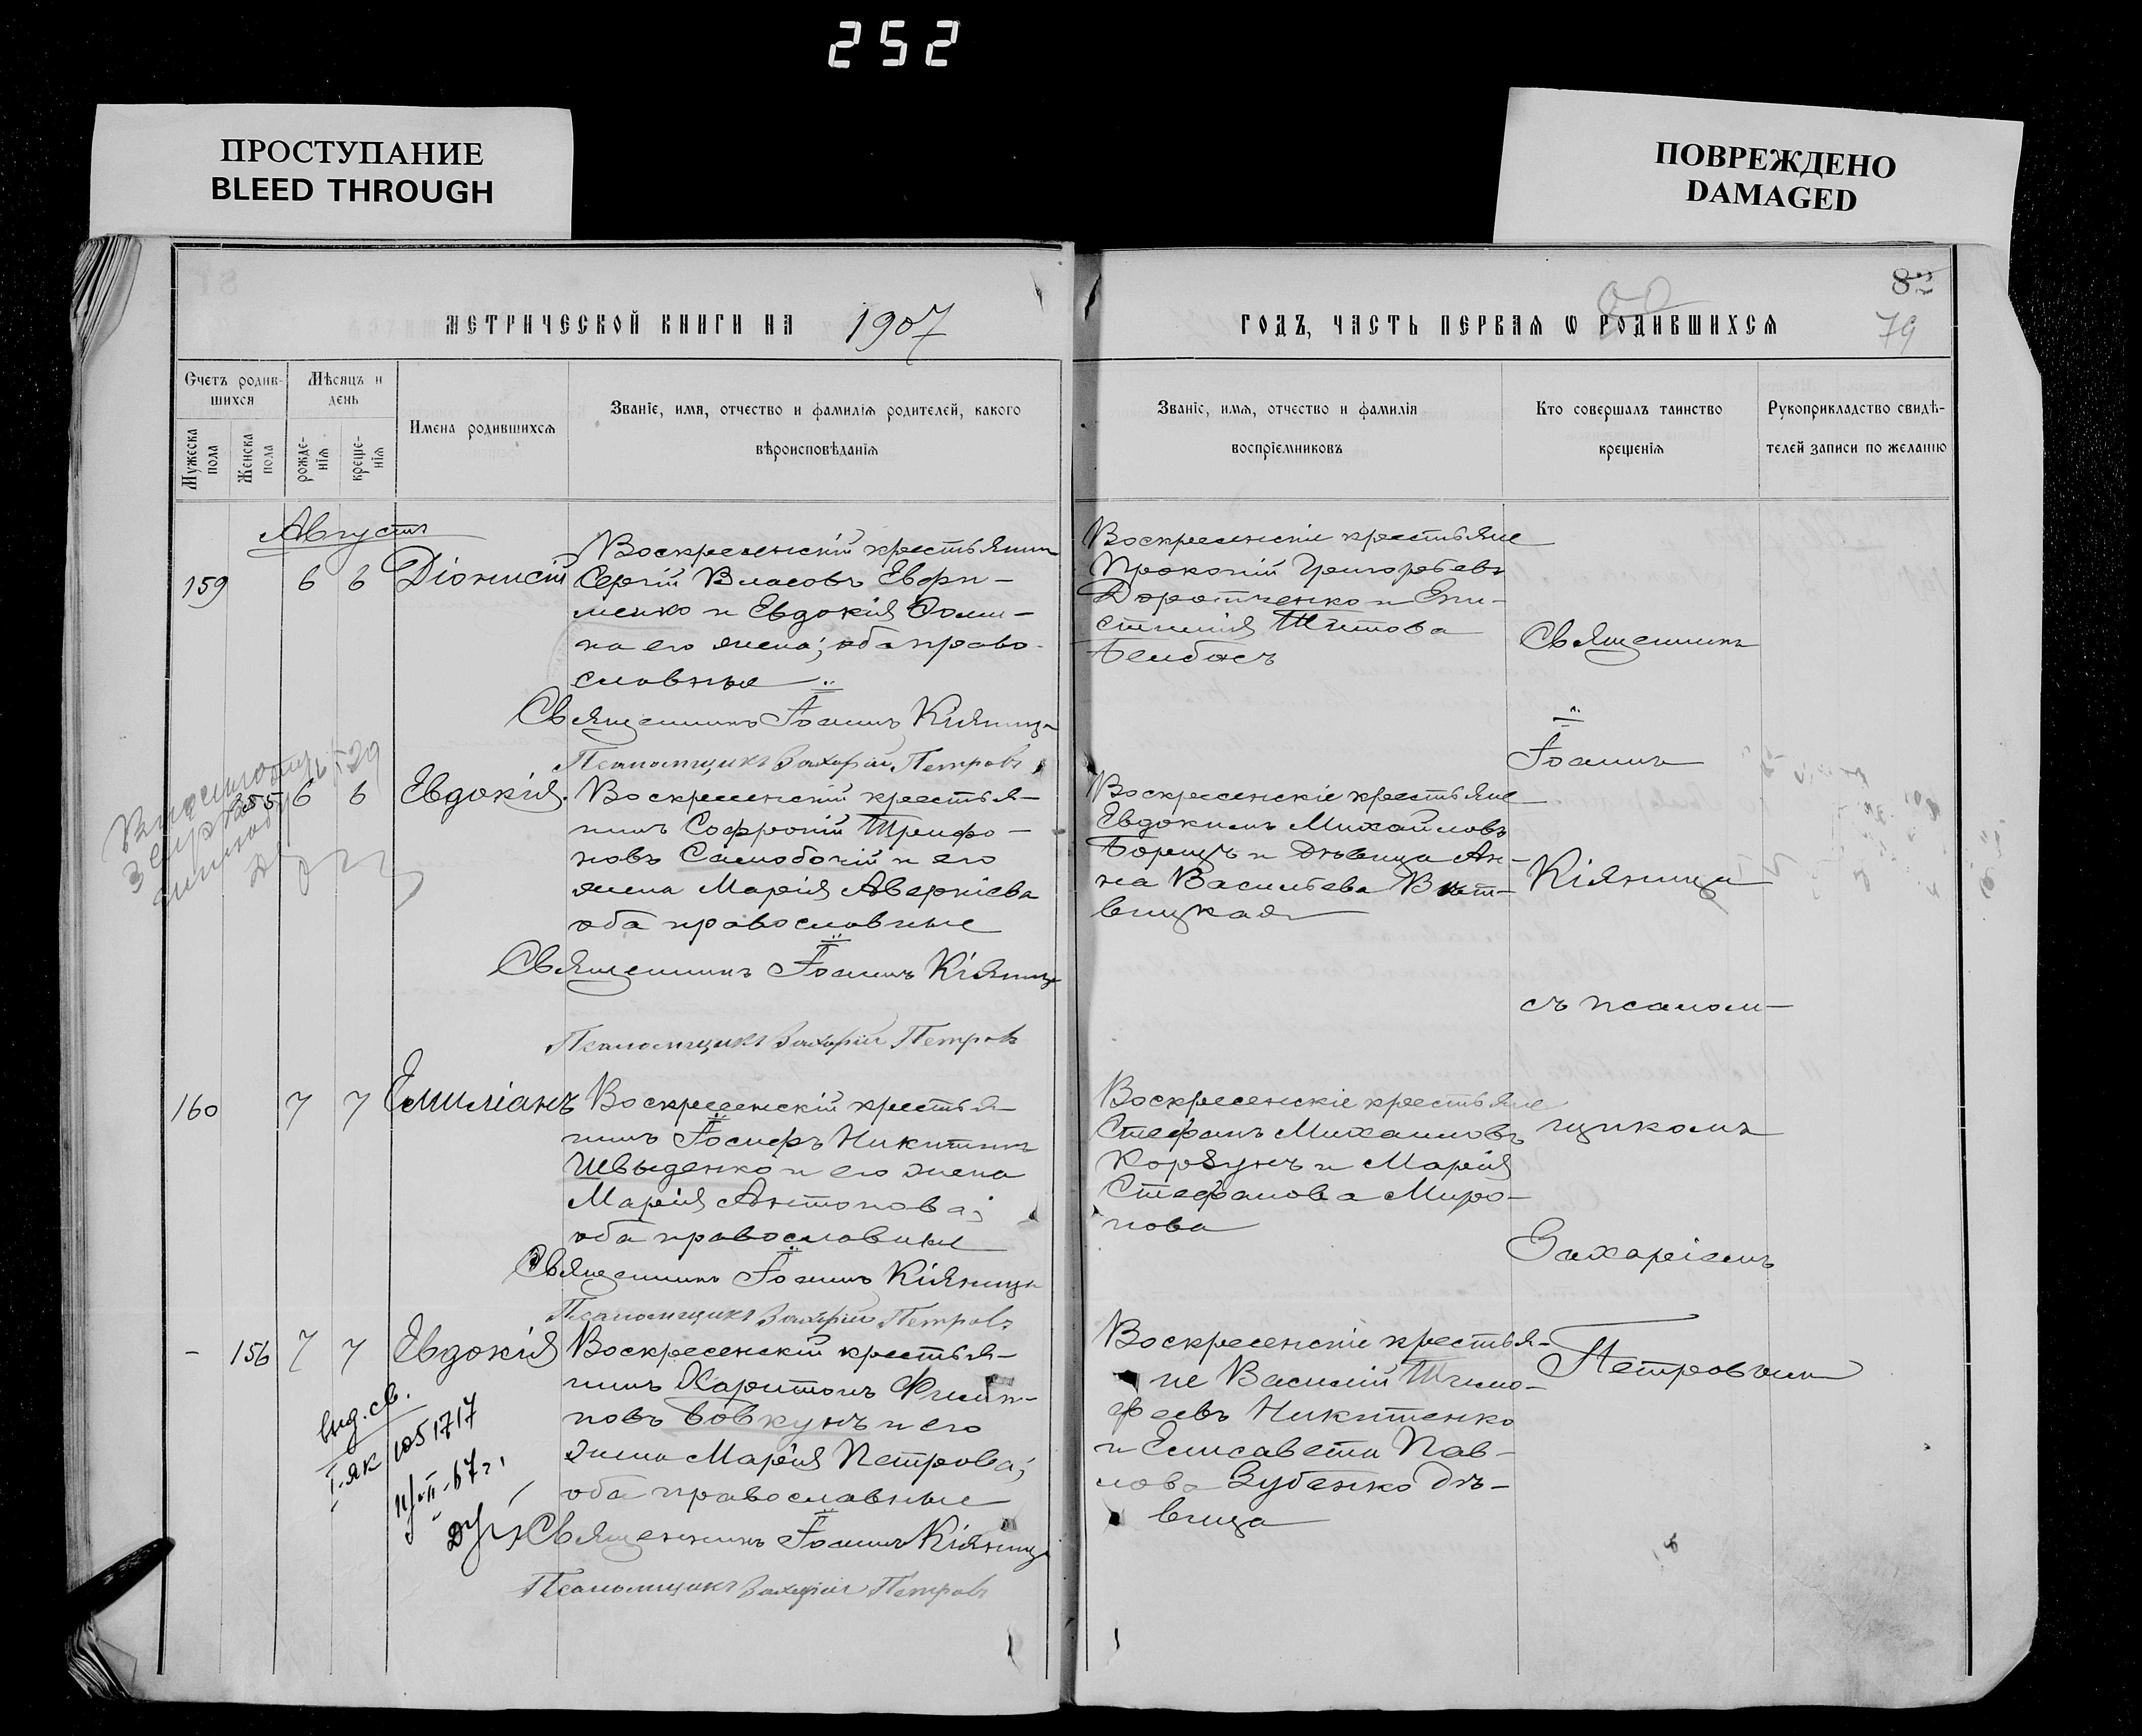 252
ПРОСТУПАНИЕ
BLEED THROUGH
ПОВРЕЖДЕНО
DAMAGED
МЕТРИЧЕСКОЙ КНИГИ НА 1907
ГОДЪ, ЧАСТЬ ПЕРВАЯ Ѡ РОДИВШИХСЯ
82
79
Счетъ родив-
шихся
Мѣсяцъ и
день
Мужеска
пола
Женска
пола
рожде-
нія
креще-
нія
Имена родившихся
Званіе, имя, отчество и фамилія родителей, какого
вѣроисповѣданія
Званіе, имя, отчество и фамилія
воспріемниковъ
Кто совершалъ таинство
крещенія
Рукоприкладство свидѣ-
телей записи по желанію
Августъ
159 6 6 Діонисій
Воскресенскій крестьянинъ
Сергій Власовъ Ефи-
менко и Евдокія Ѳоми-
на его жена; оба право-
славные
Священникъ Іоаннъ Кіяница
Псаломщикъ Захарій Петровъ
Воскресенскіе крестьяне
Прокопій Григорьевъ
Доротченко и Епи-
стимія Титова
Бембасъ
155 6 6 Евдокія.
Воскресенскій крестья-
нинъ Софроній Трифо-
новъ Самобочій и его
жена Марія Аверкіева
оба православные
Священникъ Іоаннъ Кіяница
Псаломщикъ Захарій Петровъ
Воскресенскіе крестьяне
Евдокимъ Михайловъ
Борецъ и дѣвица Ан-
на Васильева Вит-
вицкая
160 7 7 Емиліанъ
Воскресенскій крестья-
нинъ Іосифъ Никитинъ
Швыденко и его жена
Марія Антонова;
оба православные
Священникъ Іоаннъ Кіяница
Псаломщикъ Захарій Петровъ
Воскресенскіе крестьяне
Стефанъ Михаиловъ
Корзунъ и Марія
Стефанова Миро-
нова
- 156 7 7 Евдокія
Воскресенскій крестья-
нинъ Харитонъ Филип-
повъ Бовкунъ и его
жена Марія Петрова;
оба православные
Священникъ Іоаннъ Кіяница
Псаломщикъ Захарій Петровъ
Воскресенскіе крестья-
не Василій Тимо-
феевъ Никитенко
и Елисавета Пав-
лова Зубенко дѣ-
вица
Священникъ
Іоаннъ
Кіяница
съ псалом-
щикомъ
Захаріемъ
Петровымъ
выд. св.
I-ЯК 1051717
11/II-67 г.